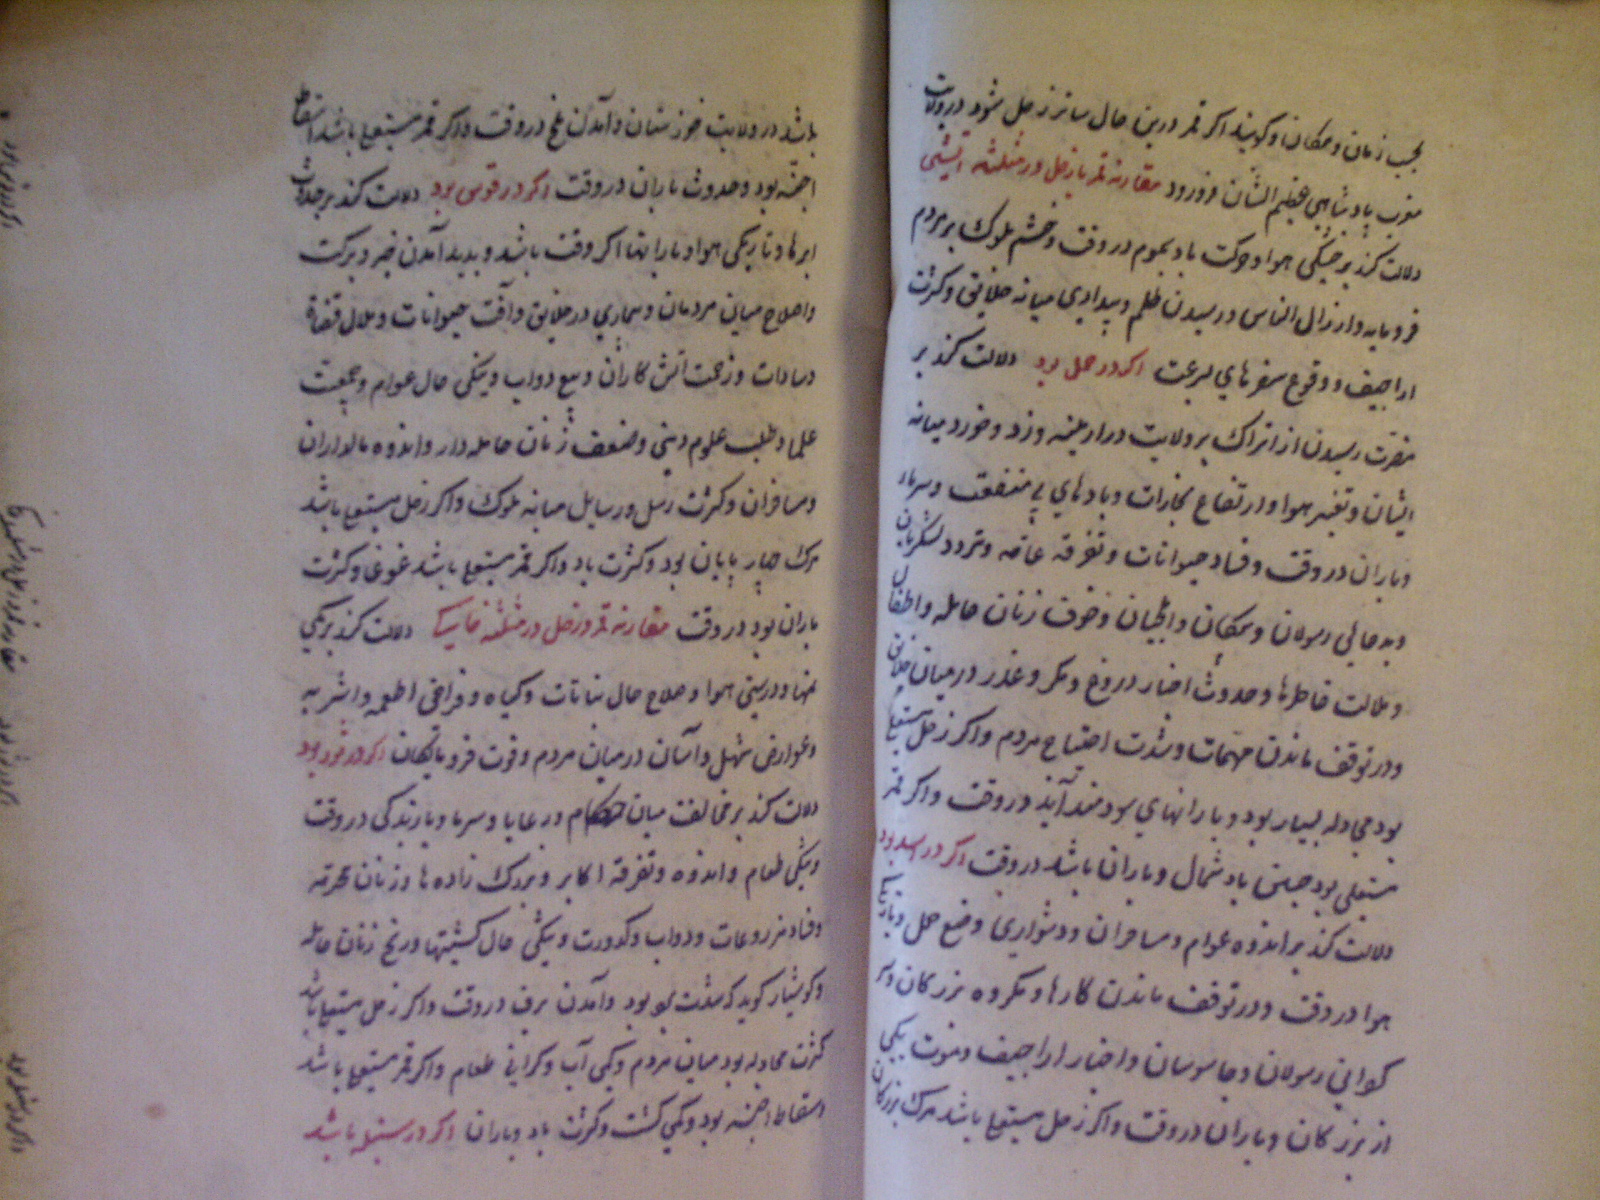 بحسب زمان و مکان و کویند اکر قمر درین حال ساتر زحل شود در ولایت
مغرب پادشاهی عظیم الشان فرو رود مقارنه قمر با زحل در مثلثه آتشی
دلالت کند بر خنکی هوا و حرکت باد سموم در وقت و خشم ملوک بر مردم
فرومایه و ارزال الناس و رسیدن ظلم و بیدادی میانه خلایق و کثرت
اراجیف و وقوع سفرهای بسرعت اکر در حمل بود دلالت کند بر
مضرت رسیدن از اتراک بر ولایت و زد و خورد میانه
ایشان و تغییر هوا و ارتفاع بخارات و بادهای بی منفعت و سرما
و باران در وقت و فساد حیوانات و تفرقه عامه و تردد لشکریان
و بد حالی رسولان و و ایلچیان و خوف زنان حامله و اطفال
و ملالت خاطرها و حدوث اخبار دروغ و مکر و غدر در میان خلایق
و در توقف ماندن مهمات و شدت احتیاج مردم و اکر زحل مستعلی
بود مجادله بسیار بود و بارانهای سودمند آید در وقت و اکر قمر
مستعلی بود جستن باد شمال و باران باشد در وقت اکر در اسد بود
دلالت کند بر اندوه عوام و مسافران و دشواری وضع حمل و تاریکی
هوا در وقت و در توقف ماندن کارها و مکروه بزرکان و
کرانی رسولان و جاسوسان و اخبار اراجیف و موت یکی
از بزرکان و باران در وقت و اکر زحل مستعلی باشد مرک بزرکان
باشد در ولایت خوزستان و آمدن ملخ در وقت و اکر قمر مستعلی باشد اسقاط
اجنه بود و حدوث باران در وقت اکر در قوس بود دلالت کند بر حدوث
ابرها و تاریکی هوا و بارانها اکر وقت باشد و پدید آمدن خیر و برکت
و اصلاح میان مردمان و بیماری در خلایق و آفت حیوانات و ملال قضاة
و سادات و زحمت آتش کاران و بیع دواب و نیکی حال عوام و جمعیت
علما و طلب علوم دینی و ضعف زنان حامله دار و اندوه مالداران
و مسافران و کثرت رسل و رسایل میانه ملوک و اکر زحل مستعلی باشد
مرک چهار پایان بود و کثرت باد و اکر قمر مستعلی باشد غوغا و کثرت
باران بود در وقت مقارنه قمر و زحل در مثلثه خاکی دلالت کند بر کمی
نمها و درستی هوا و صلاح حال نباتات و کیاه و فراخی اطعمه و اشربه
و عوارض سهل و آسان در میان مردم و قوت فرومایکان اکر در ثور بود
دلالت کند بر مخالفت میان حکام و رعایا و سرما و بارندکی در وقت
و تنکی طعام و اندوه و تفرقه اکابر و بزرک زاده ها و زنان محترمه
و فساد مزروعات و دواب و کدورت و نیکی حال کشتیها و رنج زنان حامله
و کوشیار کوید که شدت بود و آمدن برف در وقت و اکر زحل مستعلی باشد
کثرت مجادله بود میان مردم و کمی آب و کرانی طعام و اکر قمر مستعلی باشد
اسقاط اجنه بود و کمی کشت و کثرت باد و باران اکر در سنبله باشد